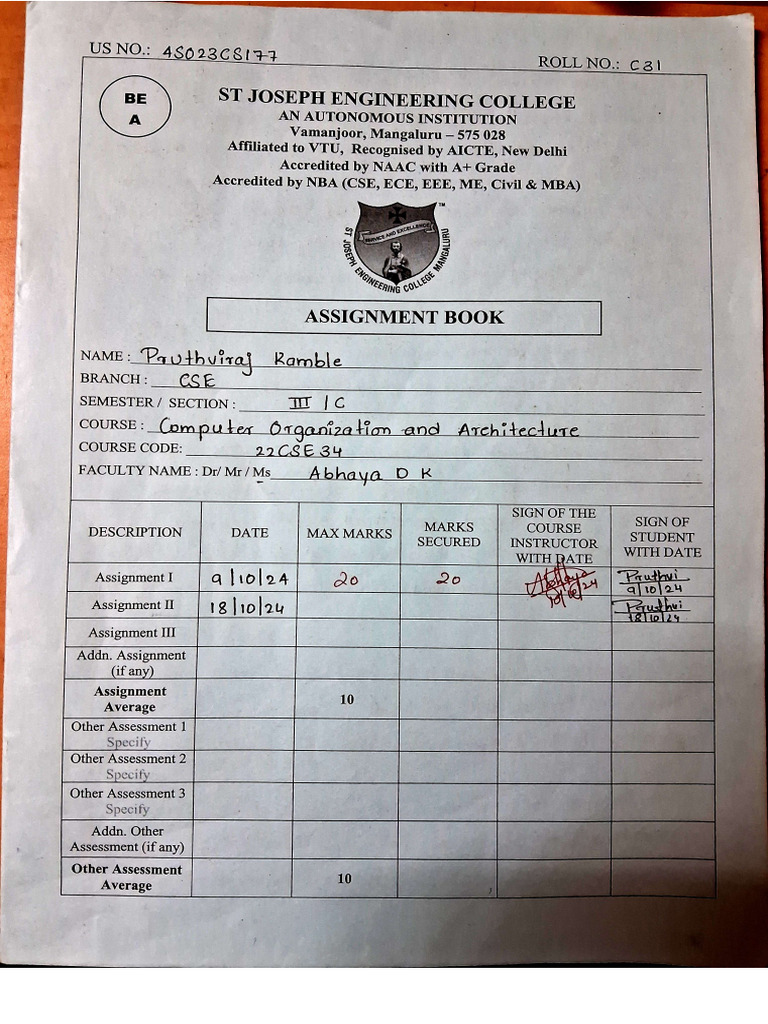 US NO.: 4SO23CS177
ROLL NO.: C31
BE
A
ST JOSEPH ENGINEERING COLLEGE
AN AUTONOMOUS INSTITUTION
Vamanjoor, Mangaluru – 575 028
Affiliated to VTU, Recognised by AICTE, New Delhi
Accredited by NAAC with A+ Grade
Accredited by NBA (CSE, ECE, EEE, ME, Civil & MBA)
TM
SERVICE AND EXCELLENCE
ST JOSEPH ENGINEERING COLLEGE MANGALURU
ASSIGNMENT BOOK
NAME : Pruthviraj Kamble
BRANCH : CSE
SEMESTER / SECTION : III / C
COURSE : Computer Organization and Architecture
COURSE CODE: 22CSE34
FACULTY NAME : Dr/ Mr / Ms Abhaya D K
DESCRIPTION DATE MAX MARKS MARKS SECURED SIGN OF THE COURSE INSTRUCTOR WITH DATE SIGN OF STUDENT WITH DATE
Assignment I 9/10/24 20 20 Abhaya 10/10/24 Pruthvi 9/10/24
Assignment II 18/10/24 Pruthvi 18/10/24
Assignment III
Addn. Assignment
(if any)
Assignment
Average 10
Other Assessment 1
Specify
Other Assessment 2
Specify
Other Assessment 3
Specify
Addn. Other
Assessment (if any)
Other Assessment
Average 10